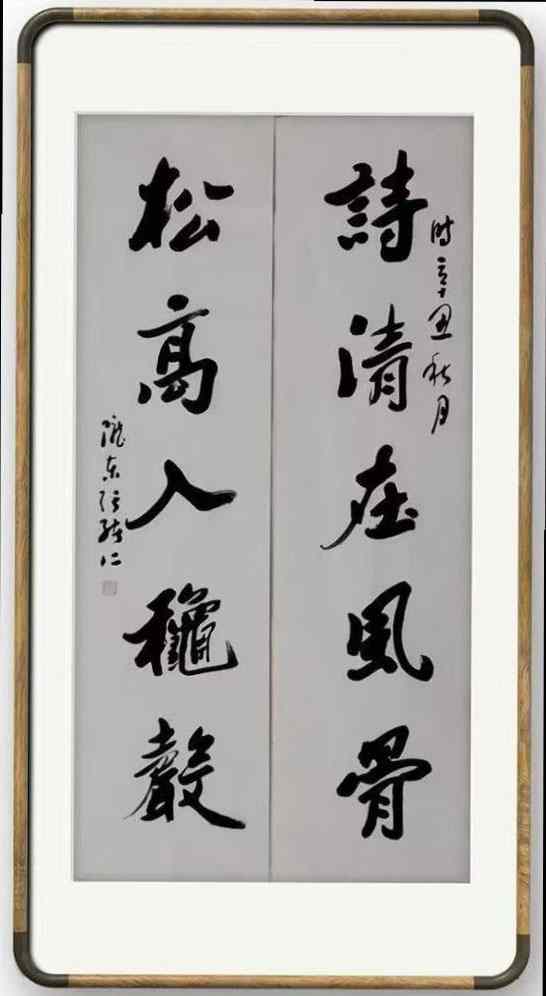 時辛丑秋月
詩清在風骨
松高入穐聲
隴东張继仁